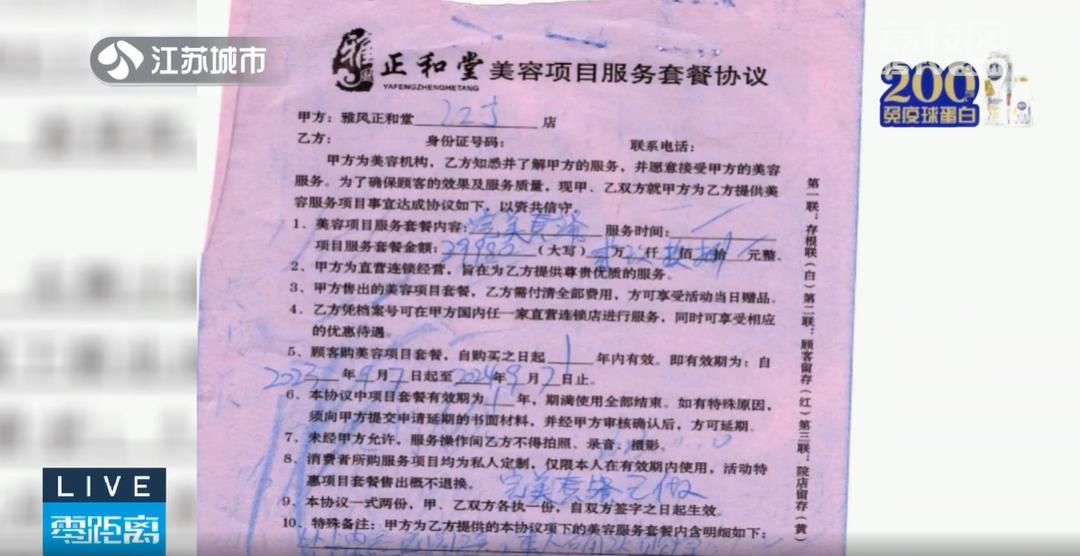 江苏城市
荔枝网
200
免疫球蛋白
雅風 正和堂 美容项目服务套餐协议
YAFENGZHENGHETANG
甲方：雅风正和堂 店
乙方： 身份证号码： 联系电话：
甲方为美容机构，乙方知悉并了解甲方的服务，并愿意接受甲方的美容
服务。为了确保顾客的效果及服务质量，现甲、乙双方就甲方为乙方提供美
容服务项目事宜达成协议如下，以资共信守。
1、美容项目服务套餐内容：完美套餐 服务时间：
项目服务套餐金额：29980（大写） 万 仟 佰 拾 元整。
2、甲方为直营连锁经营，旨在为乙方提供尊贵优质的服务。
3、甲方售出的美容项目套餐，乙方需付清全部费用，方可享受活动当日赠品。
4、乙方凭档案号可在甲方国内任一家直营连锁店进行服务，同时可享受相应
的优惠待遇。
5、顾客购美容项目套餐，自购买之日起 1 年内有效。即有效期为：自
2023年9月7日起至2024年9月7日止。
6、本协议中项目套餐有效期为 年，期满使用全部结束。如有特殊原因，
须向甲方提交申请延期的书面材料，并经甲方审核确认后，方可延期。
7、未经甲方允许，服务操作间乙方不得拍照、录音、摄影。
8、消费者所购服务项目均为私人定制，仅限本人在有效期内使用，活动特
惠项目套餐售出概不退换。 完美套餐已做
9、本协议一式两份，甲、乙双方各执一份，自双方签字之日起生效。
10、特殊备注：甲方为乙方提供的本协议项下的美容服务套餐内含明细如下：
第一联：存根联（白）第二联：顾客留存（红）第三联：院店留存（黄）
LIVE
零距离